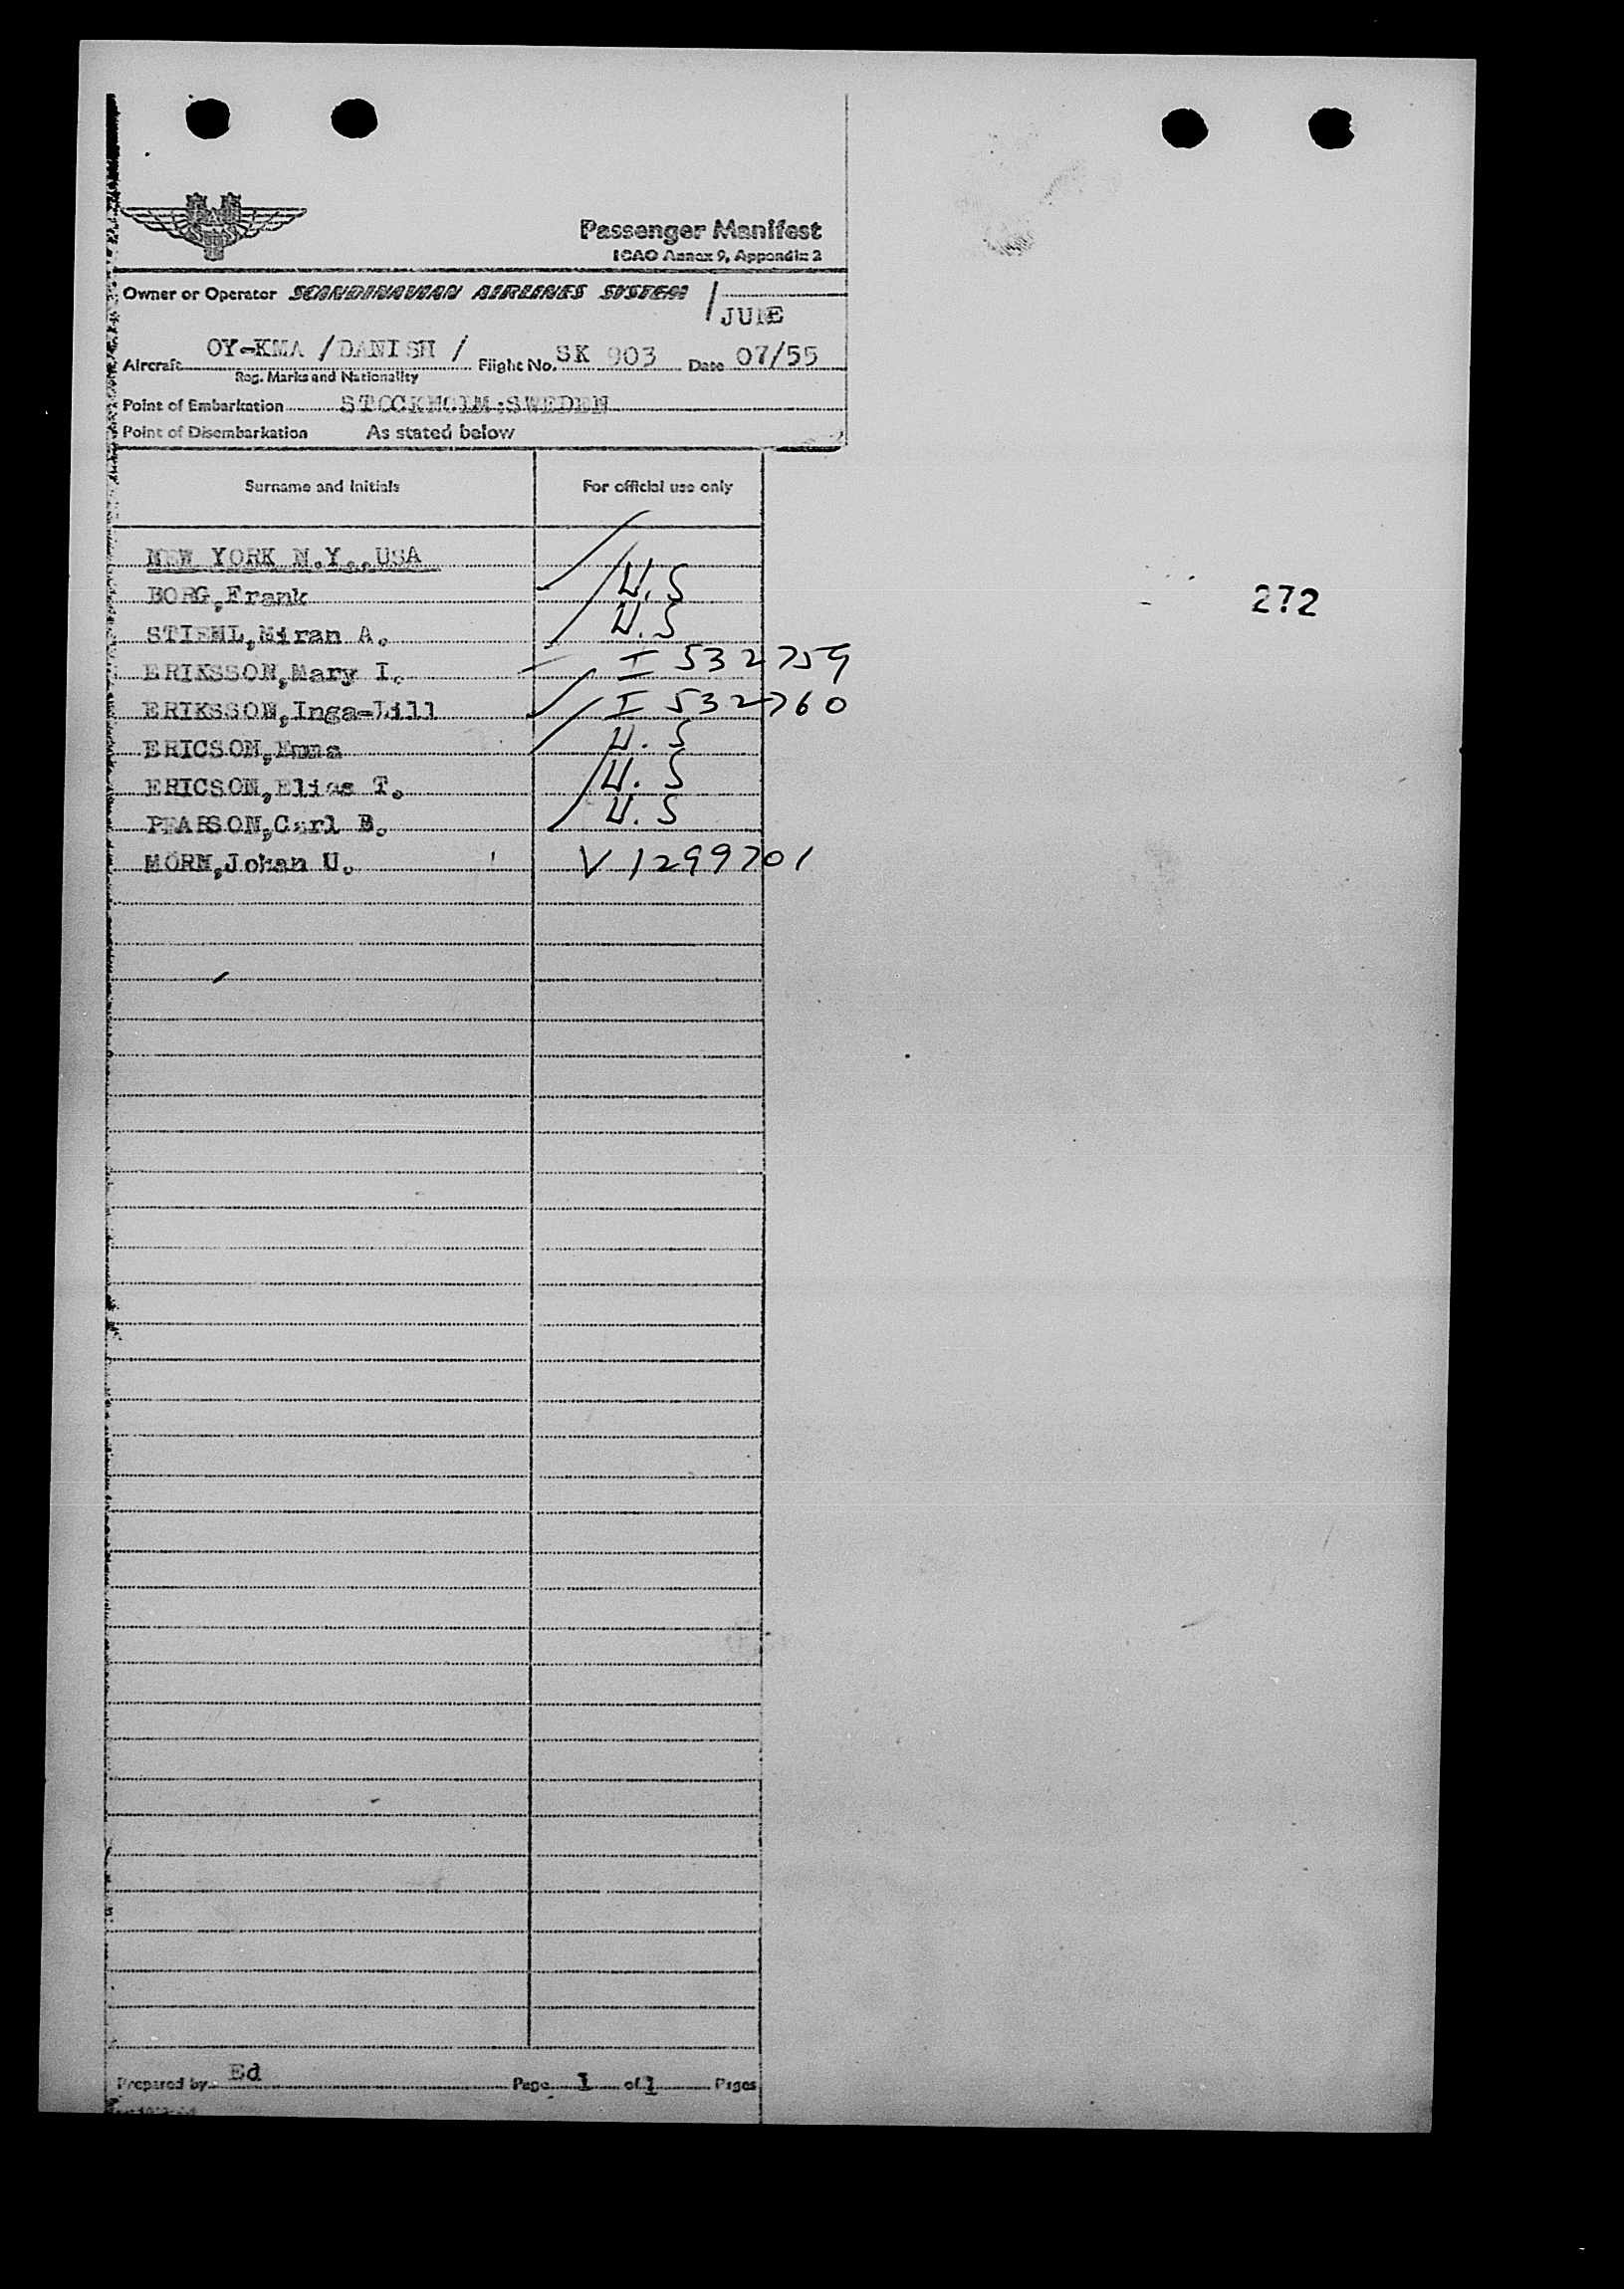 Passenger Manifest
ICAO Annex 9, Appendix 2
Owner or Operator SCANDINAVIAN AIRLINES SYSTEM /
JUNE
Aircraft OY-KMA /DANISH / Flight No. SK 903 Date 07/55
Reg. Marks and Nationality
Point of Embarkation STOCKHOLM:SWEDEN
Point of Disembarkation As stated below
Surname and Initials For official use only
NEW YORK N.Y.,USA
BORG,Frank U.S
STIEHL,Miran A. U.S
ERIKSSON,Mary I. I 532759
272
ERIKSSON,Inga-Lill I 532760
ERICSON,Emma U.S
ERICSON,Elias T. U.S
PEARSON,Carl B. U.S
MÖRN,Johan U. V 1299701
Prepared by Ed Page 1 of 1 Pages